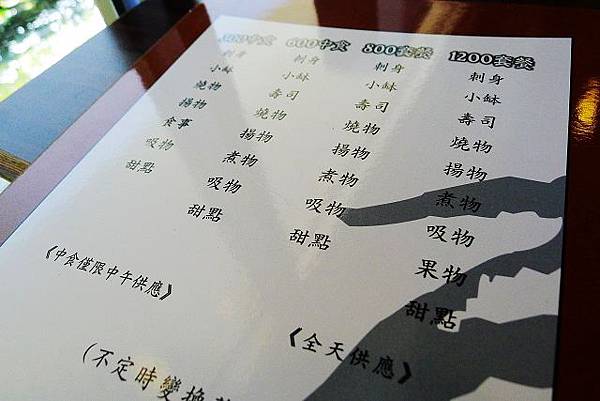 中食
刺身
小缽
燒物
揚物
食事
吸物
甜點
600中食
刺身
小缽
壽司
燒物
揚物
煮物
吸物
甜點
800套餐
刺身
小缽
壽司
燒物
揚物
煮物
吸物
甜點
1200套餐
刺身
小缽
壽司
燒物
揚物
煮物
吸物
果物
甜點
《中食僅限中午供應》
《全天供應》
(不定時變換